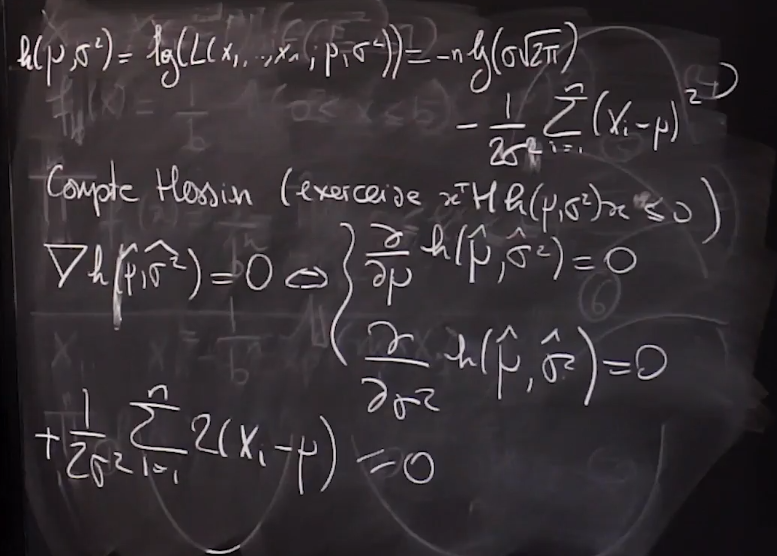 h(μ,σ²) = lg(L(x₁,...,xₙ; μ,σ²)) = -n lg(σ√2π)
- 1/2σ² Σⁿᵢ₌₁ (Xᵢ-μ)²
Compte Hessin (exerceise xᵀH h(μ,σ²)x ≤ 0)
∇h(μ̂,σ̂²) = 0 ⇔ { ∂/∂μ h(μ̂,σ̂²) = 0
∂/∂σ² h(μ̂,σ̂²) = 0
+ 1/2σ² Σⁿᵢ₌₁ 2(Xᵢ-μ) = 0